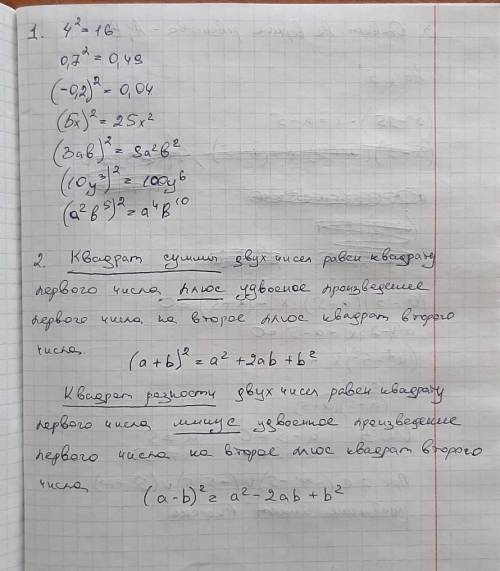 1. 4² = 16
0,7² = 0,49
(-0,2)² = 0,04
(5x)² = 25x²
(3ab)² = 9a²b²
(10y³)² = 100y⁶
(a²b⁵)² = a⁴b¹⁰
2. Квадрат суммы двух чисел равен квадрату
первого числа плюс удвоенное произведение
первого числа на второе плюс квадрат второго
числа.
(a+b)² = a² + 2ab + b²
Квадрат разности двух чисел равен квадрату
первого числа минус удвоенное произведение
первого числа на второе плюс квадрат второго
числа
(a-b)² = a² - 2ab + b²